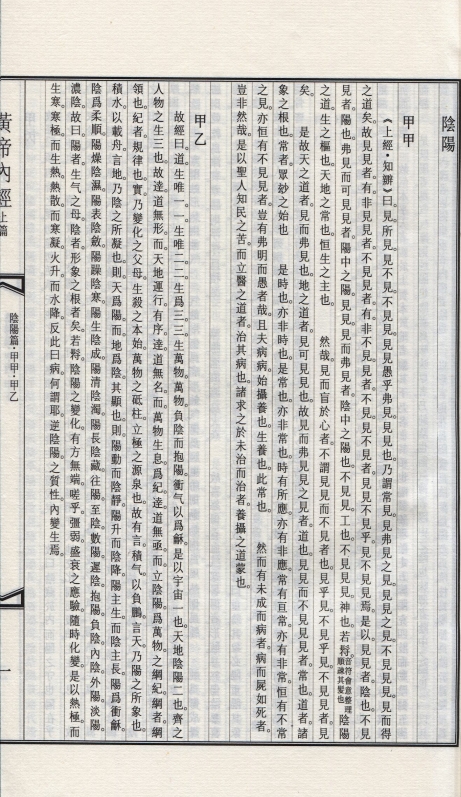 陰陽
甲甲
《上經·知辯》曰。見所見。見不見。不見見。見見愚乎。弗見見見也。乃謂常見。見弗見之見。見見之見。不見見見。見而得
之道矣。故見見者。有非見見者。不見見者。有非不見見者。不見見。不見見者。見見不見乎。見不見見焉。是以見見者。陰也。不見
見者。陽也。弗見而可見見者。陽中之陽也。見見而弗見者。陰中之陽也。不見見。工也。不見見見。神也。若
之道。生之樞也。天地之常也。恒生之主也。 然哉。見而盲於心者。不謂見見而不見者也。見乎見。不見乎。見不見見者。見
矣。 是故天之道者。見而弗見也。地之道者。見可見見也。故見而弗見見之見者。道也。見見而不見見見者。常也。道者。諸
象之根也。常者。眾妙之始也 是時也。亦非時也。是常也。亦非常也。時有所應。亦有非應。常有亘常。亦有非常。恒有不常
之見。亦恒有不見見者。豈有弗明而愚者哉。且夫病病。始攝養也。生養也。此常也。 然而有未成而病者。病而屍如死者。
豈非然哉。是以聖人知民之苦。而立醫之道者。治其病也。諸求之於未治而治者。養攝之道蒙也。
甲乙
故經曰。道生唯一。一生唯二。二生爲三。三生萬物。萬物負陰而抱陽。衝气以爲龢。是以宇宙一也。天地陰陽二也。齊之
人物之生三也。故達道無形。而天地運行有序。達道無名。而萬物生息爲紀。達道無亟。而立陰陽爲萬物之綱紀。綱者。綱
領也。紀者。規律也。實乃變化之父母。生殺之本始。萬物之砥柱。立極之源泉也。故有言。積气以負鵬。言天乃陽之所象也。
積水以載舟。言地乃陰之所凝也。則天爲陽。而地爲陰。其顯也。則陽動而陰靜。陽升而陰降。陽主生而陰主長。陽爲衝龢。
陰爲柔順。陽燥陰濕。陽表陰斂。陽躁陰寒。陽生陰成。陽清陰濁。陽長陰藏。往陽至陰。數陽遲陰。抱陽負陰。內陰外陽。淡陽
濃陰。故曰。陽者生气之母。陰者形象之根者矣。若辤陰陽之變化。有方無端。嗟乎。張弱盛衰之應驗。隨時化變。是以熱極而
生寒。寒極而生熱。熱散而寒凝。火升而水降。反此曰病。何謂耶。逆陰陽之質性。內變生焉。
黃帝內經 上篇
陰陽篇·甲甲·甲乙
一